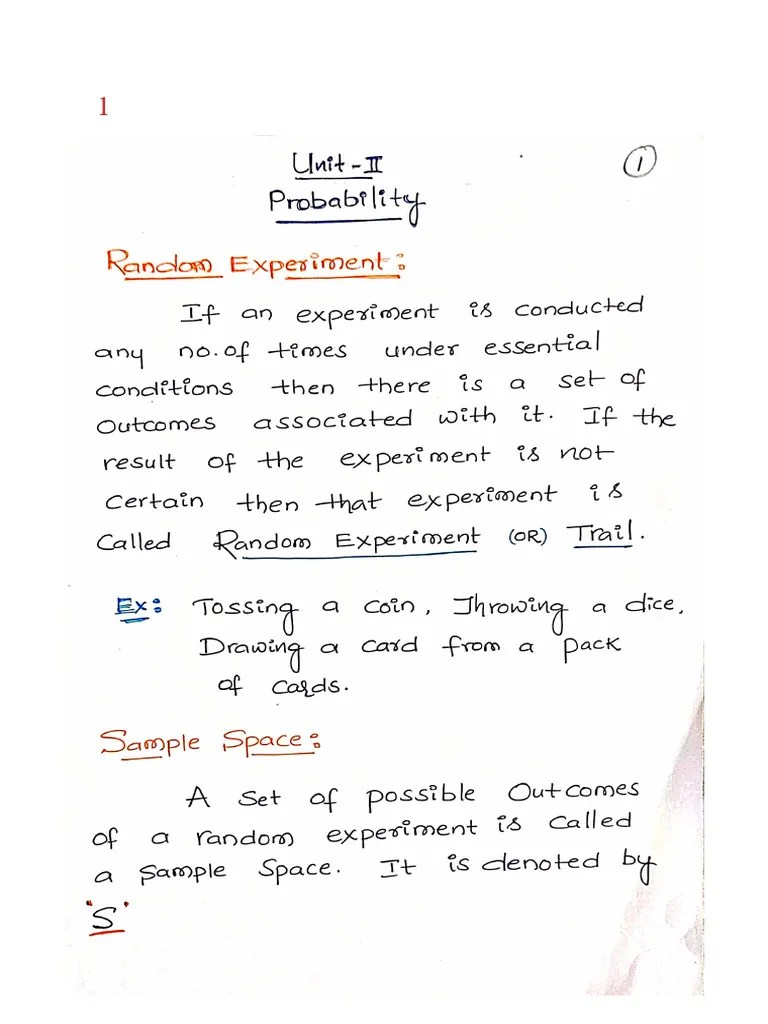 1
Unit-II
①
Probability
Random Experiment:
If an experiment is conducted
any no. of times under essential
conditions then there is a set of
Outcomes associated with it. If the
result of the experiment is not
certain then that experiment is
Called Random Experiment (OR) Trail.
Ex: Tossing a coin, Throwing a dice,
Drawing a card from a pack
of cards.
Sample Space:
A set of possible Outcomes
of a random experiment is called
a sample Space. It is denoted by
"S"